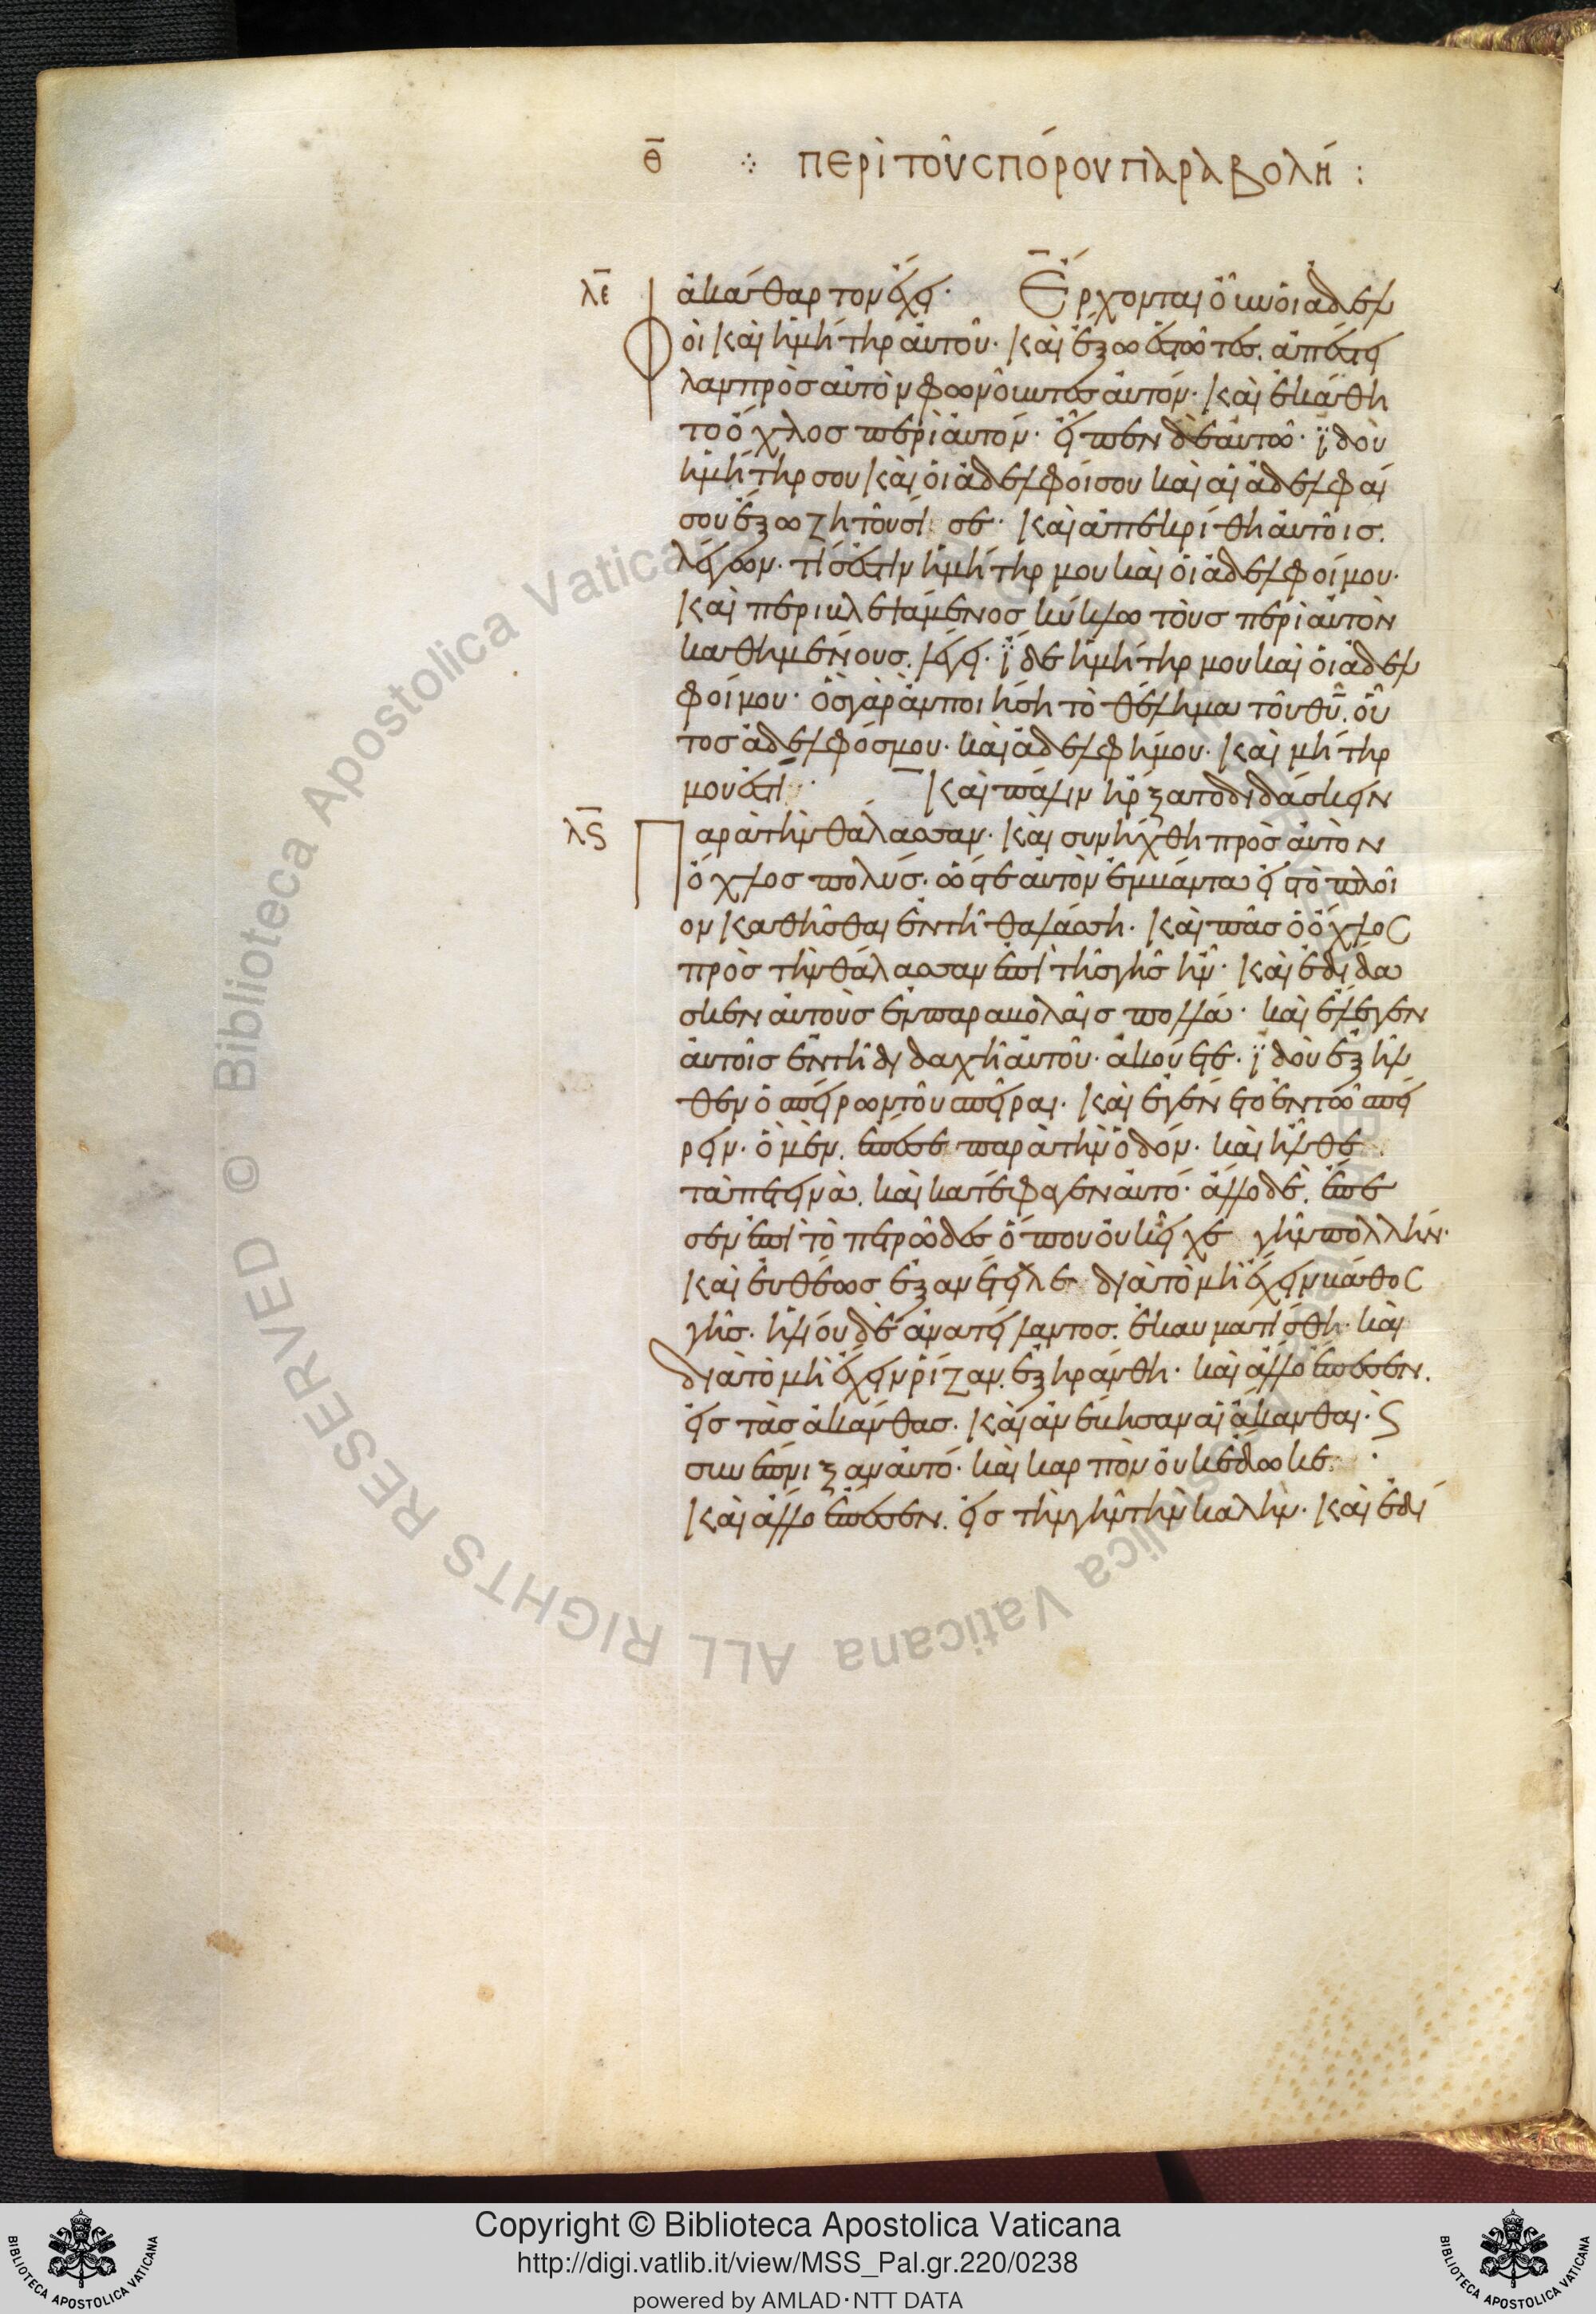 θ ⁘ περὶ τοῦ σπόρου παραβολή :
λε ἀκάθαρτον ἔχει· Ἔρχονται οὖν οἱ ἀδελ
φοὶ καὶ ἡ μήτηρ αὐτοῦ· καὶ ἔξω ἑστῶτες. ἀπέστει
λαν πρὸς αὐτὸν φωνοῦντες αὐτόν· καὶ ἐκάθη
το ὄχλος περὶ αὐτόν· εἶπεν δὲ αὐτῶ· ἰδοὺ
ἡ μήτηρ σου καὶ οἱ ἀδελφοί σου καὶ αἱ ἀδελφαί
σου ἔξω ζητοῦσί σε· καὶ ἀπεκρίθη αὐτοῖς.
λέγων· τίς ἐστιν ἡ μήτηρ μου καὶ οἱ ἀδελφοί μου·
καὶ περιβλεψάμενος κύκλω τοὺς περὶ αὐτὸν
καθημένους. λέγει· ἴδε ἡ μήτηρ μου καὶ οἱ ἀδελ
φοί μου· ὃς γὰρ ἂν ποιήση τὸ θέλημα τοῦ θυ. οὗ
τος ἀδελφός μου· καὶ ἀδελφή μου· καὶ μήτηρ
μου ἐστί· Καὶ πάλιν ἤρξατο διδάσκειν
λς Παρὰ τὴν θάλασσαν· καὶ συνήχθη πρὸς αὐτὸν
ὄχλος πολύς· ὥστε αὐτὸν ἐμβάντα εἰς τὸ πλοῖ
ον καθῆσθαι ἐν τῆ θαλάσση· καὶ πᾶς ὁ ὄχλος
πρὸς τὴν θάλασσαν ἐπὶ τῆς γῆς ἦν· καὶ ἐδίδα
σκεν αὐτοὺς ἐν παραβολαῖς πολλά· καὶ ἔλεγεν
αὐτοῖς ἐν τῆ διδαχῆ αὐτοῦ· ἀκούετε· ἰδοὺ ἐξῆλ
θεν ὁ σπείρων τοῦ σπεῖραι· καὶ ἐγένετο ἐν τῶ σπεί
ρειν· ὃ μὲν. ἔπεσε παρὰ τὴν ὁδόν· καὶ ἦλθε
τὰ πετεινὰ. καὶ κατέφαγεν αὐτό· ἄλλο δὲ. ἔπε
σεν ἐπὶ τὸ πετρῶδες ὅπου οὐκ εἶχε γῆν πολλήν·
καὶ εὐθέως ἐξανέτειλε διὰ τὸ μὴ ἔχειν βάθος
γῆς· ἡλίου δὲ ἀνατείλαντος. ἐκαυματίσθη· καὶ
διὰ τὸ μὴ ἔχειν ῥίζαν. ἐξηράνθη· καὶ ἄλλο ἔπεσεν.
εἰς τὰς ἀκάνθας. καὶ ἀνέβησαν αἱ ἄκανθαι· ϛ
συνέπνιξαν αὐτό· καὶ καρπὸν οὐκ ἔδωκε·
καὶ ἄλλο ἔπεσεν. εἰς τὴν γῆν τὴν καλὴν· καὶ ἐδί
Copyright © Biblioteca Apostolica Vaticana
http://digi.vatlib.it/view/MSS_Pal.gr.220/0238
powered by AMLAD·NTT DATA
© Biblioteca Apostolica Vaticana ALL RIGHTS RESERVED
BIBLIOTECA APOSTOLICA VATICANA
BIBLIOTECA APOSTOLICA VATICANA